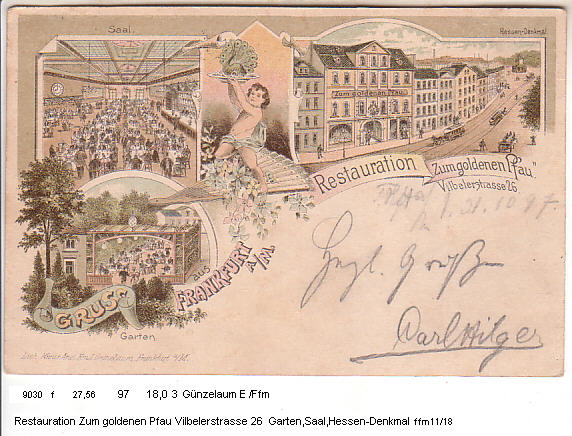 Saal.
Hessen-Denkmal
Zum goldenen Pfau
Restauration
"Zum goldenen Pfau"
Vilbelerstrasse 26
31.10.97
Herzl. Grüße
Carl Hilger
GRUSS
aus
FRANKFURT
A/M.
Garten
Frankfurt a/M.
9030 f 27,56 97 18,0 3 Günzelaum E /Ffm
Restauration Zum goldenen Pfau Vilbelerstrasse 26 Garten,Saal,Hessen-Denkmal ffm11/18